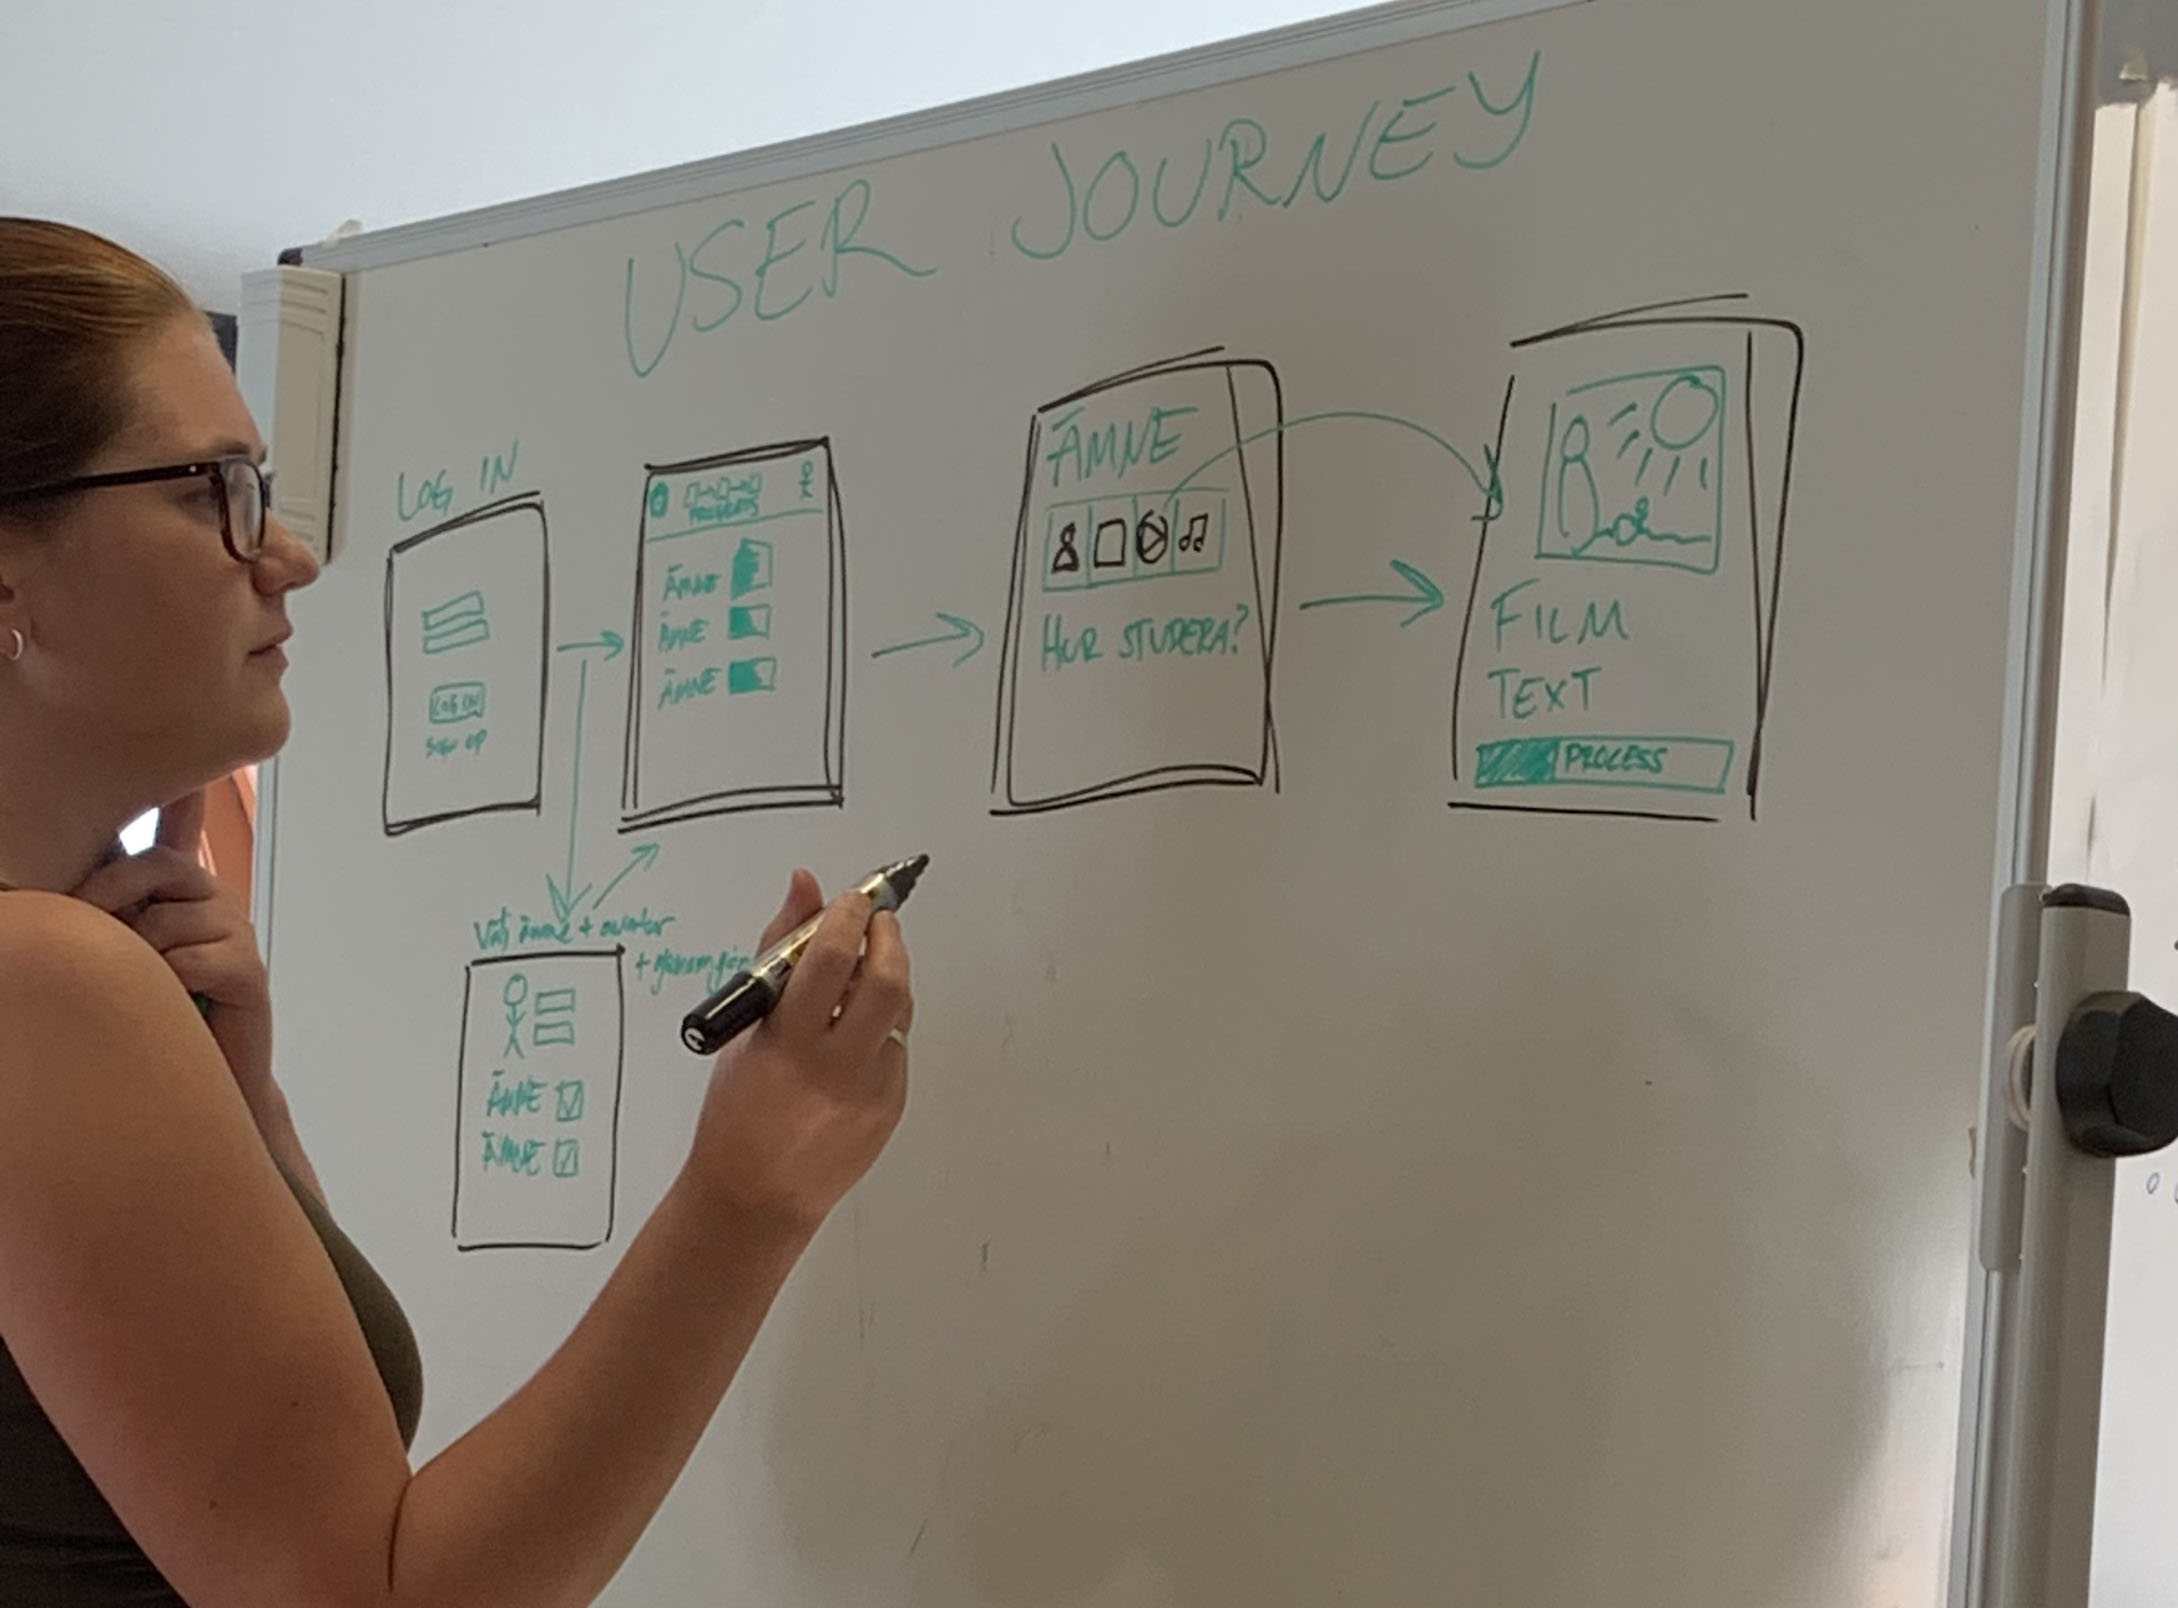 USER JOURNEY
LOG IN
LOG IN
SIGN UP
PROGRESS
ÄMNE
ÄMNE
ÄMNE
ÄMNE
HUR STUDERA?
FILM
TEXT
PROCESS
Välj ämne + avatar
+
ÄMNE
ÄMNE